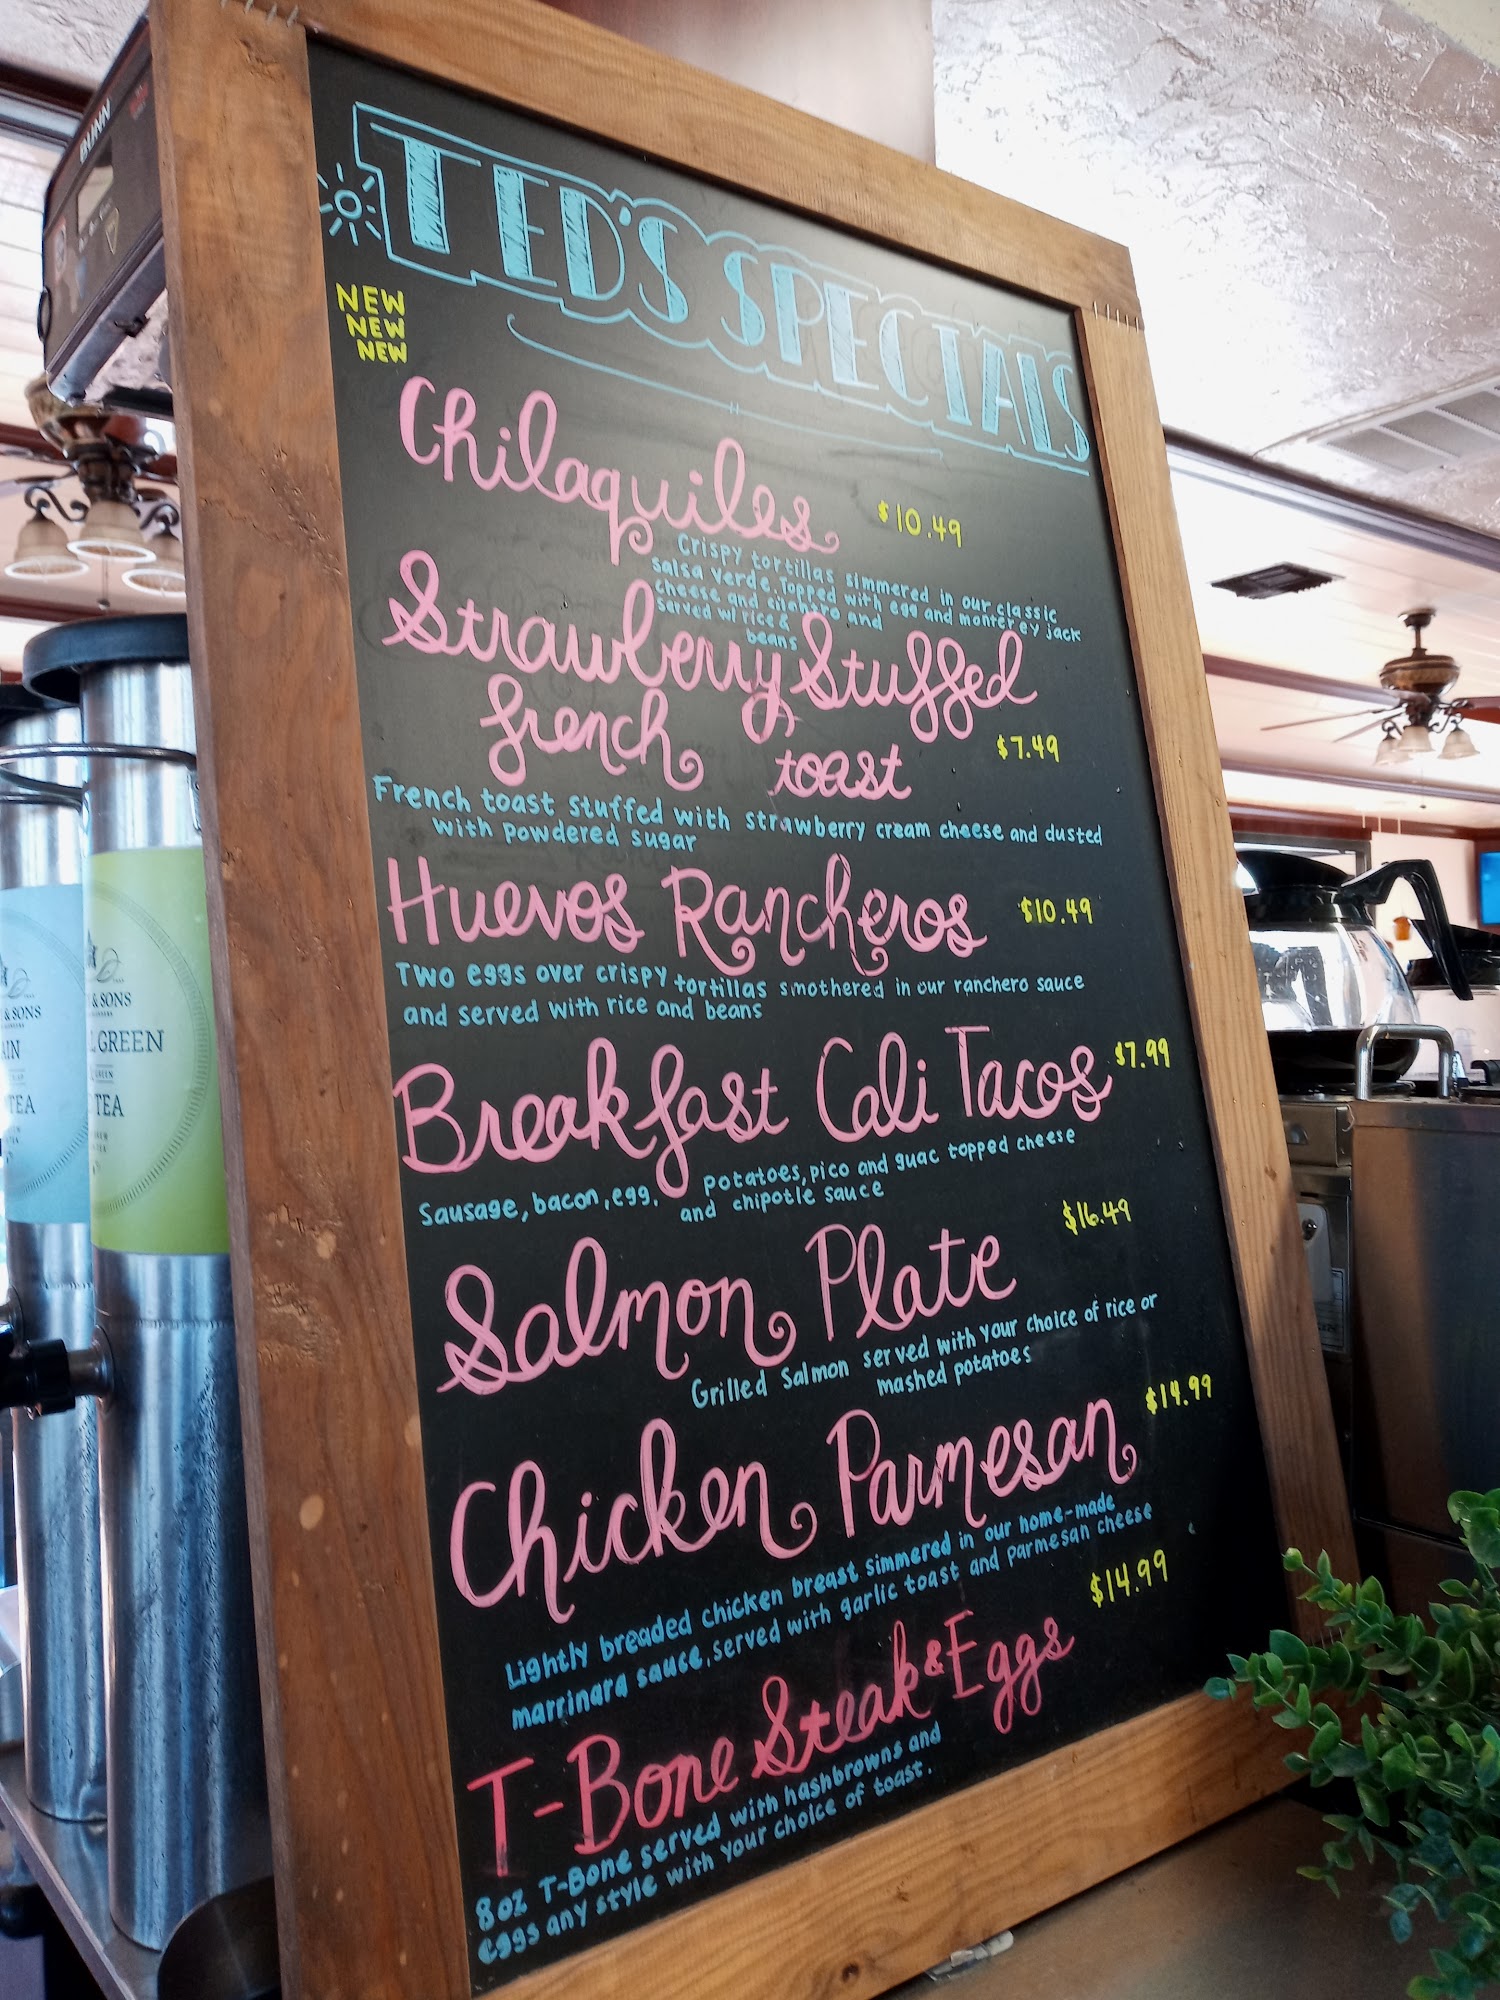 BUNN
TED'S SPECIALS
NEW
NEW
NEW
Chilaquiles $10.49
Crispy tortillas simmered in our classic
salsa verde. Topped with egg and monterey jack
cheese and cilantro and
served w/ rice &
beans
Strawberry Stuffed
french toast $7.49
French toast stuffed with strawberry cream cheese and dusted
with powdered sugar
Huevos Rancheros $10.49
Two eggs over crispy tortillas smothered in our ranchero sauce
and served with rice and beans
Breakfast Cali Tacos $7.99
Sausage, bacon, egg, potatoes, pico and guac topped cheese
and chipotle sauce
Salmon Plate $16.49
Grilled Salmon served with your choice of rice or
mashed potatoes
Chicken Parmesan $14.99
Lightly breaded chicken breast simmered in our home-made
marrinara sauce, served with garlic toast and parmesan cheese
T-Bone Steak & Eggs $14.99
8oz T-Bone served with hashbrowns and
eggs any style with your choice of toast.
& SONS
GREEN
GREEN
TEA
& SONS
AIN
TEA